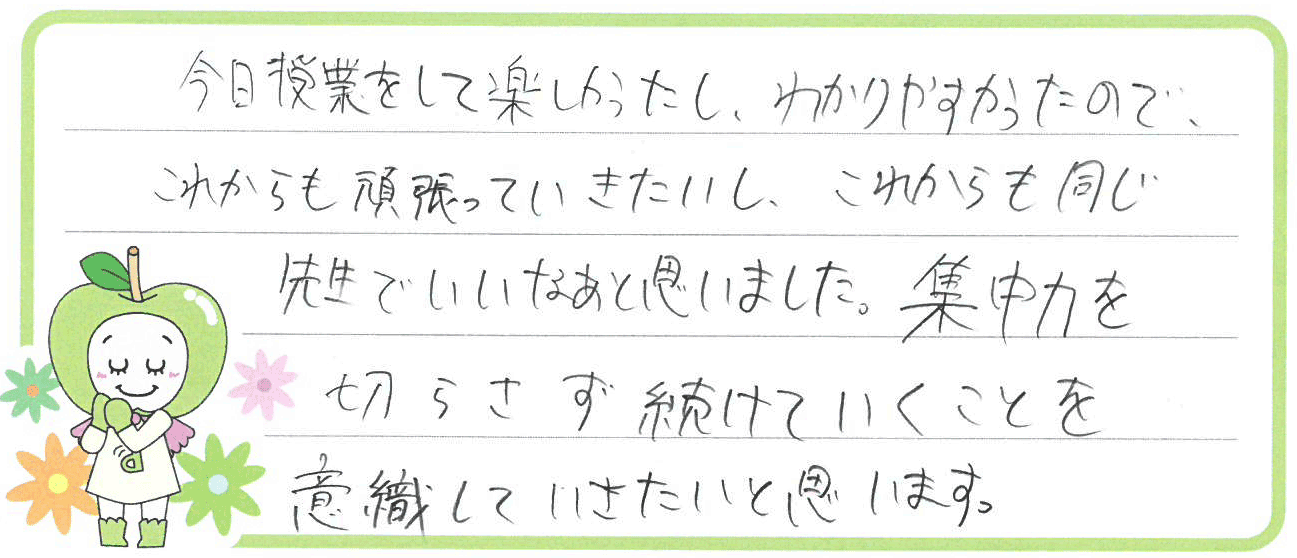 今日授業をして楽しかったし、わかりやすかったので、
これからも頑張っていきたいし、これからも同じ
先生でいいなあと思いました。集中力を
切らさず続けていくことを
意識していきたいと思います。